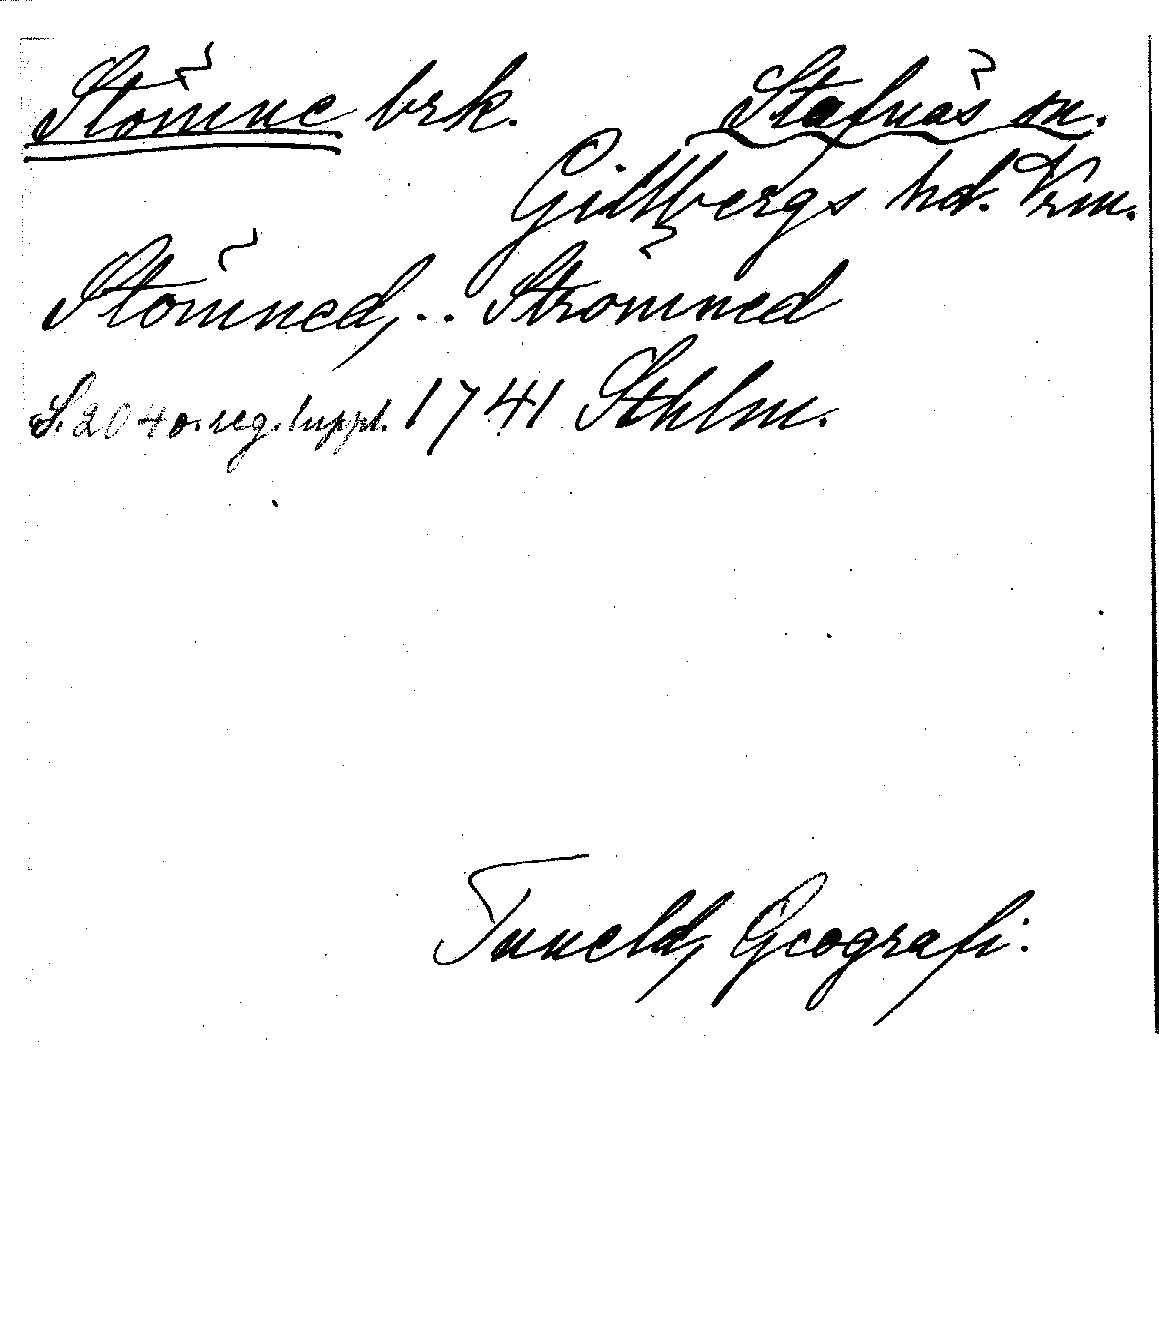 Stömne brk. Stafnäs sn.
Gillbergs hd. Vrm.
Stömned, .. Strömned
S. 204 o. reg. suppl. 1741 Sthlm.
Tuneld, Geografi: